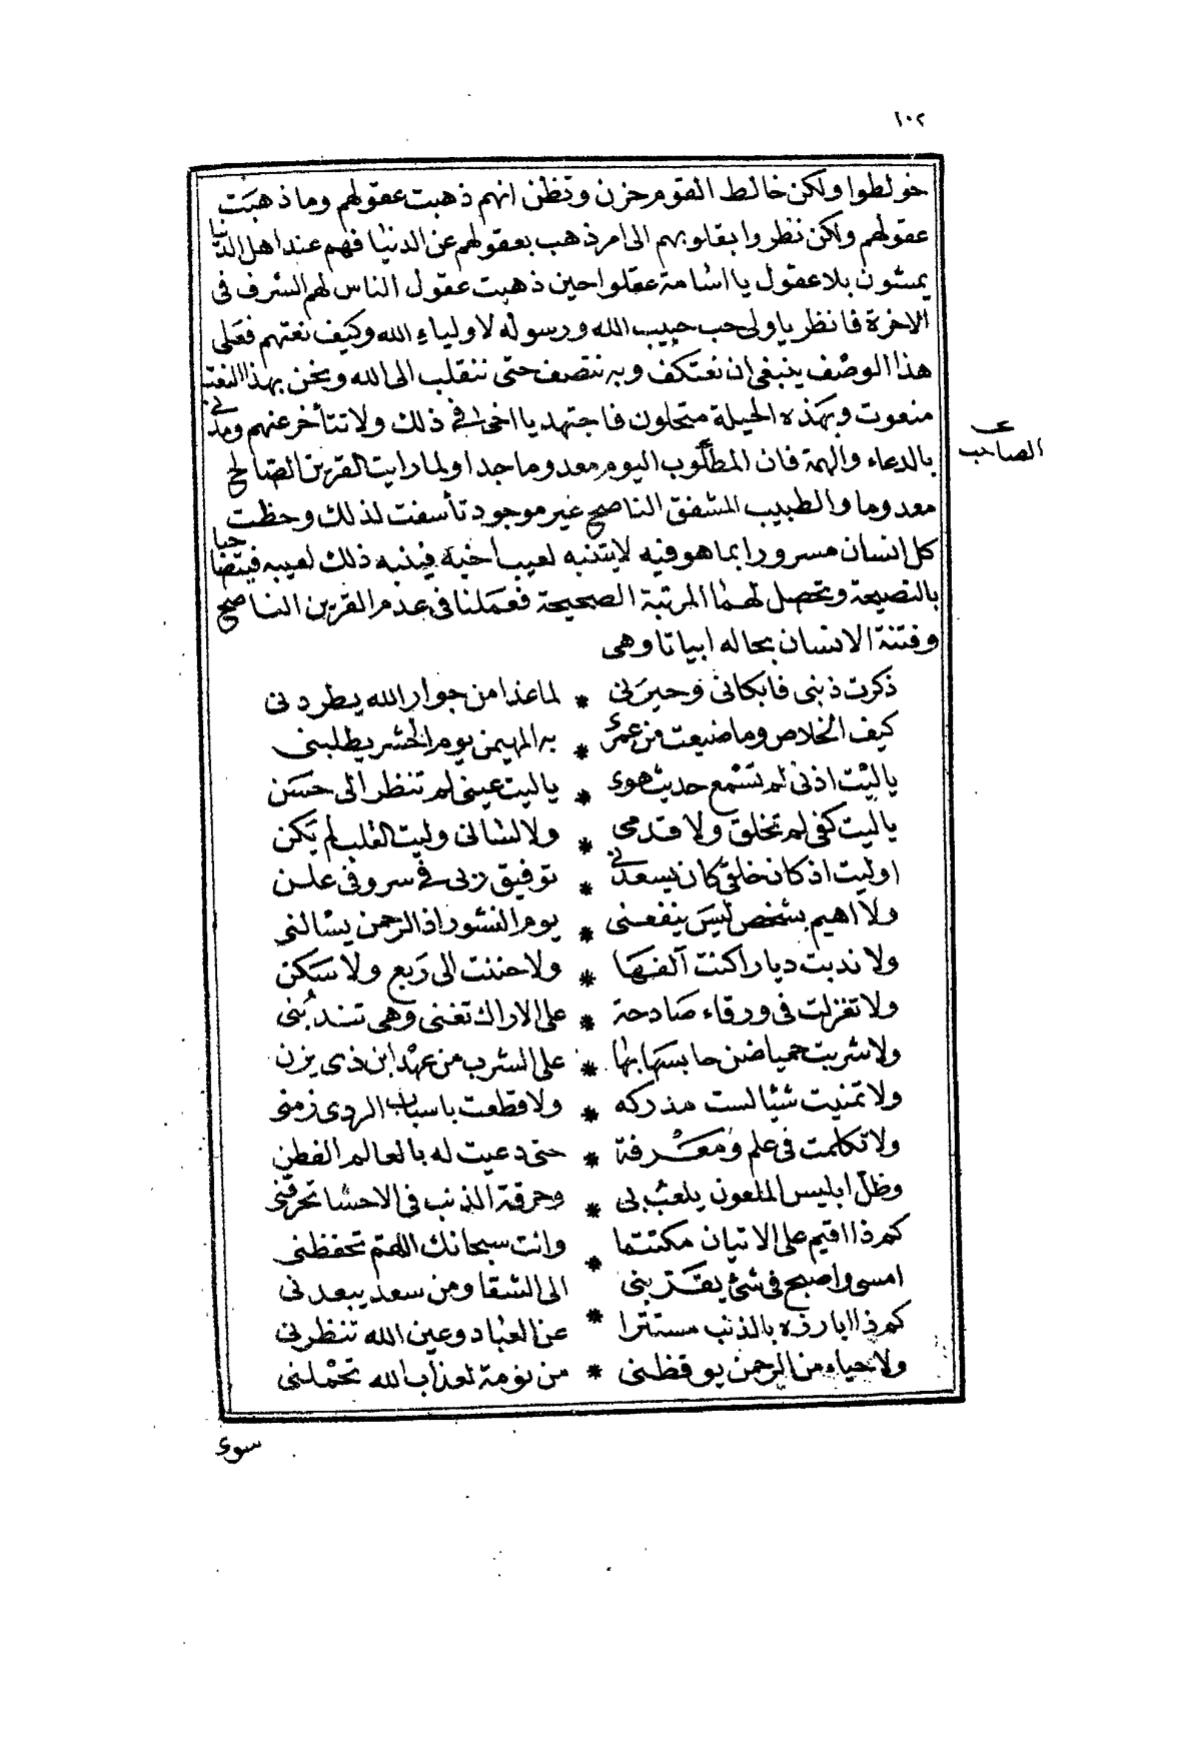 ١٠٢
خولطوا ولكن خالط القوم حزن وتظن انهم ذهبت عقولهم وما ذهبت
عقولهم ولكن نظروا بقلوبهم الى امر ذهب بعقولهم عن الدنيا فهم عند اهل الدنيا
يمشون بلا عقول يا اسامة عقلوا حين ذهبت عقول الناس لهم الشرف فى
الاخرة فانظر يا ولى حب حبيب الله ورسوله لاولياء الله وكيف نعتهم فعلى
هذا الوصف ينبغى ان نعتكف وبه نتصف حتى ننقلب الى الله ونحن بهذا النعت
منعوت وبهذه الحيلة متحلون فاجتهد يا اخى فى ذلك ولا تتأخر عنهم ومدنى
بالدعاء والهمة فان المطلوب اليوم معدوم جدا ولما رايت القرين الصالح
الصاحب
معدوما والطبيب المشفق الناصح غير موجود تأسفت لذلك وحظت
كل انسان مسرورا بما هو فيه لا يتنبه لعيب أخيه فينبه ذلك لعيبه فيتضاحبا
بالنصيحة وتحصل لهما المرتبة الصحيحة فعملنا فى عدم القرين الناصح
وفتنة الانسان بحاله ابياتا وهى
ذكرت ذنبى فابكانى وحيرنى * لما غدا من جوار الله يطردنى
كيف الخلاص وما ضيعت من عمرى * به المهيمن يوم الحشر يطلبنى
ياليت اذنى لم تسمع حديث هوى * ياليت عينى لم تنظر الى حسن
ياليت كفى لم تخلق ولا قدمى * ولا لسانى وليت القلب لم يكن
اوليت اذ كان خلقى كان يسعدنى * توفيق ربى فى سر وفى علن
ولا اهيم بشخص ليس ينفعنى * يوم النشور اذ الرحمن يسالنى
ولا ندبت ديارا كنت آلفها * ولا حننت الى ربع ولا سكن
ولا تغزلت فى ورقاء صادحة * على الاراك تغنى وهى تندبنى
ولا شربت حميا ضن حابسها بها * على الشرب من عهد ابن ذى يزن
ولا تمنيت شيئا لست مدركه * ولا قطعت باسباب الردى زمنى
ولا تكلمت فى علم ومعرفة * حتى دعيت له بالعالم الفطن
وظل ابليس الملعون يلعب بى * وحرقة الذنب فى الاحشا تحرقنى
كم ذا اقيم على الاتيان مكتتما * وانت سبحانك اللهم تحفظنى
امسى واصبح فى شئ يقربنى * الى الشقا ومن سعد يبعدنى
كم ذا ابارزه بالذنب مستترا * عن العباد وعين الله تنظرنى
ولا حياء من الرحمن يوقظنى * من نومة لعذاب الله تحملنى
سوى